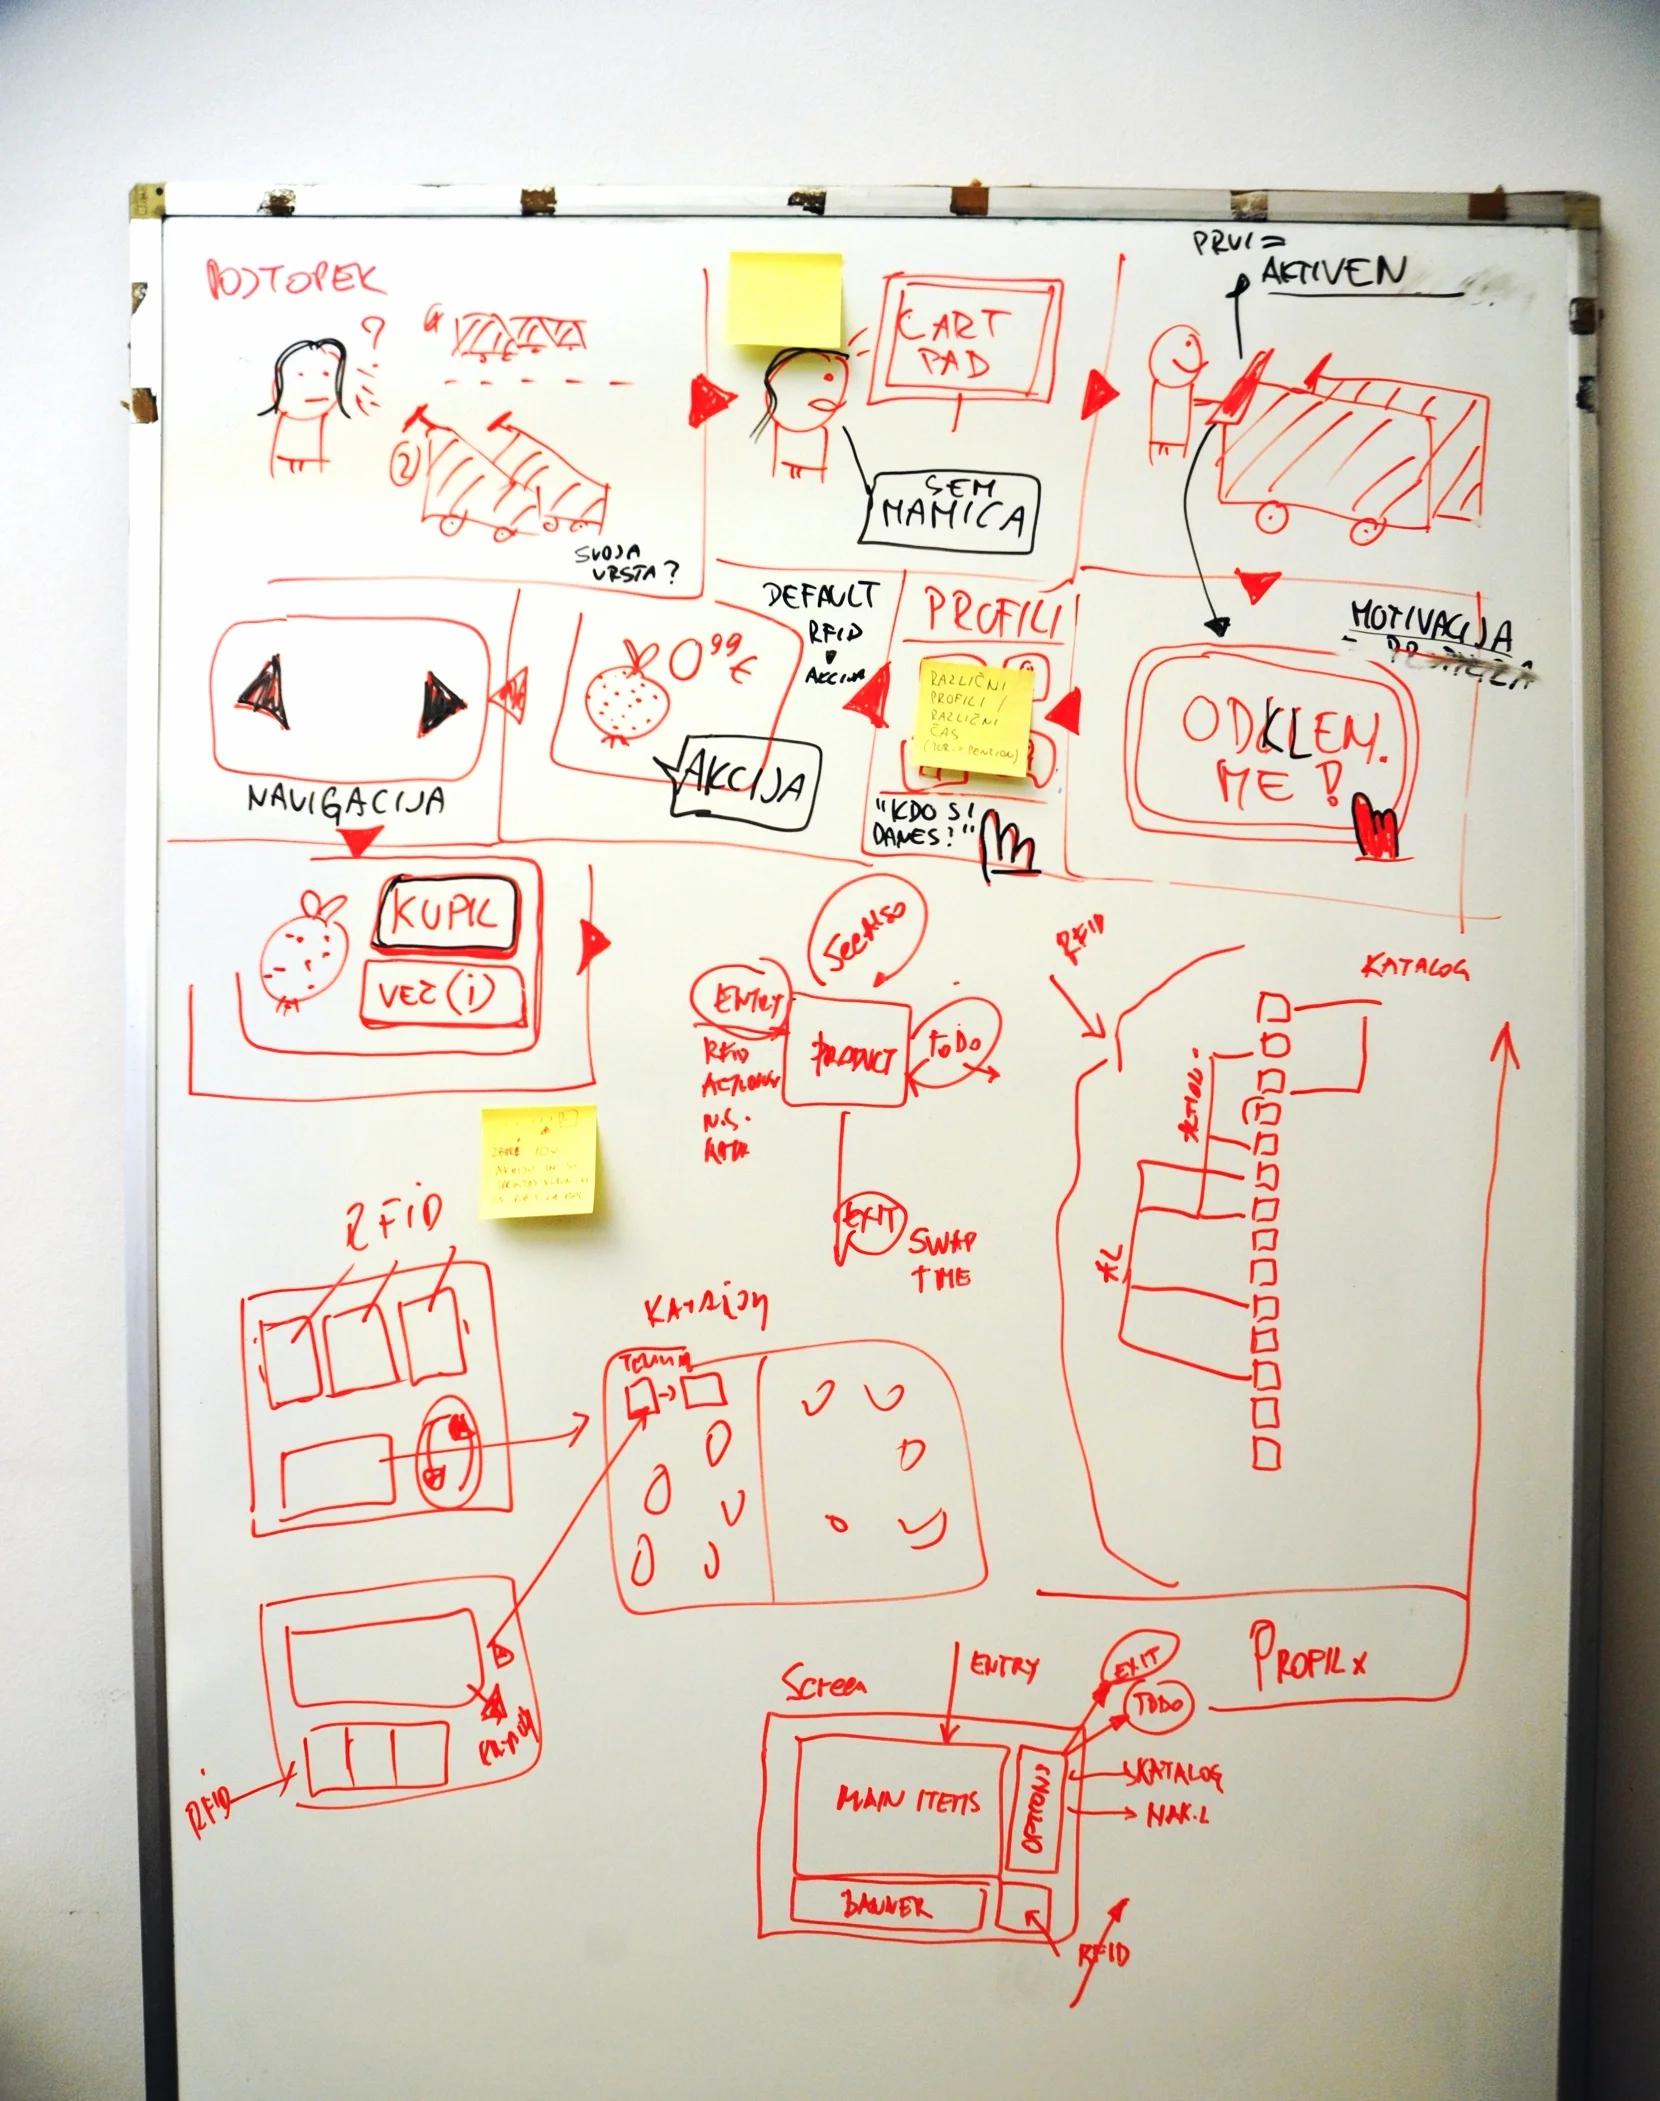 POSTOPEK
?
2
SVOJA
VRSTA?
CART
PAD
SEM
MAMICA
PRVI =
AKTIVEN
MOTIVACIJA
ODKLEN.
ME!
PROFILI
RAZLIČNI
PROFILI /
RAZLIČNI
ČAS
"KDO SI
DANES?"
DEFAULT
RFID
AKCIJA
0 99 €
AKCIJA
NAVIGACIJA
KUPIL
VEČ (i)
See Also
ENTRY
PRODUCT
ToDo
RFID
EXIT
SWAP
TIME
RFID
KATALOG
RFID
RFID
PROFIL x
Screen
ENTRY
EXIT
TODO
MAIN ITEMS
OPTIONS
KATALOG
NAK.L
BANNER
RFID